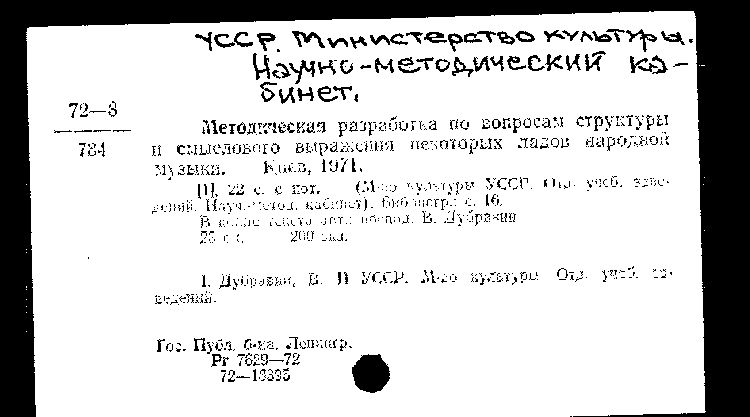 УССР. Министерство культуры.
Научно-методический ка-
бинет.
72—3
784
Методическая разработка по вопросам структуры
и смыслового выражения некоторых ладов народной
музыки. Киев, 1971.
[1], 22 с. с нот. (М-во культуры УССР. Отд. учеб. заве-
дений. Науч.-метод. кабинет). Библиогр.: с. 16.
В конце текста авт.: В. Дубравин
25 к. 200 экз.
I. Дубравин, В. II УССР. М-во культуры. Отд. учеб. за-
ведений.
Гос. Публ. б-ка. Ленингр.
Рг 7629—72
72—13395